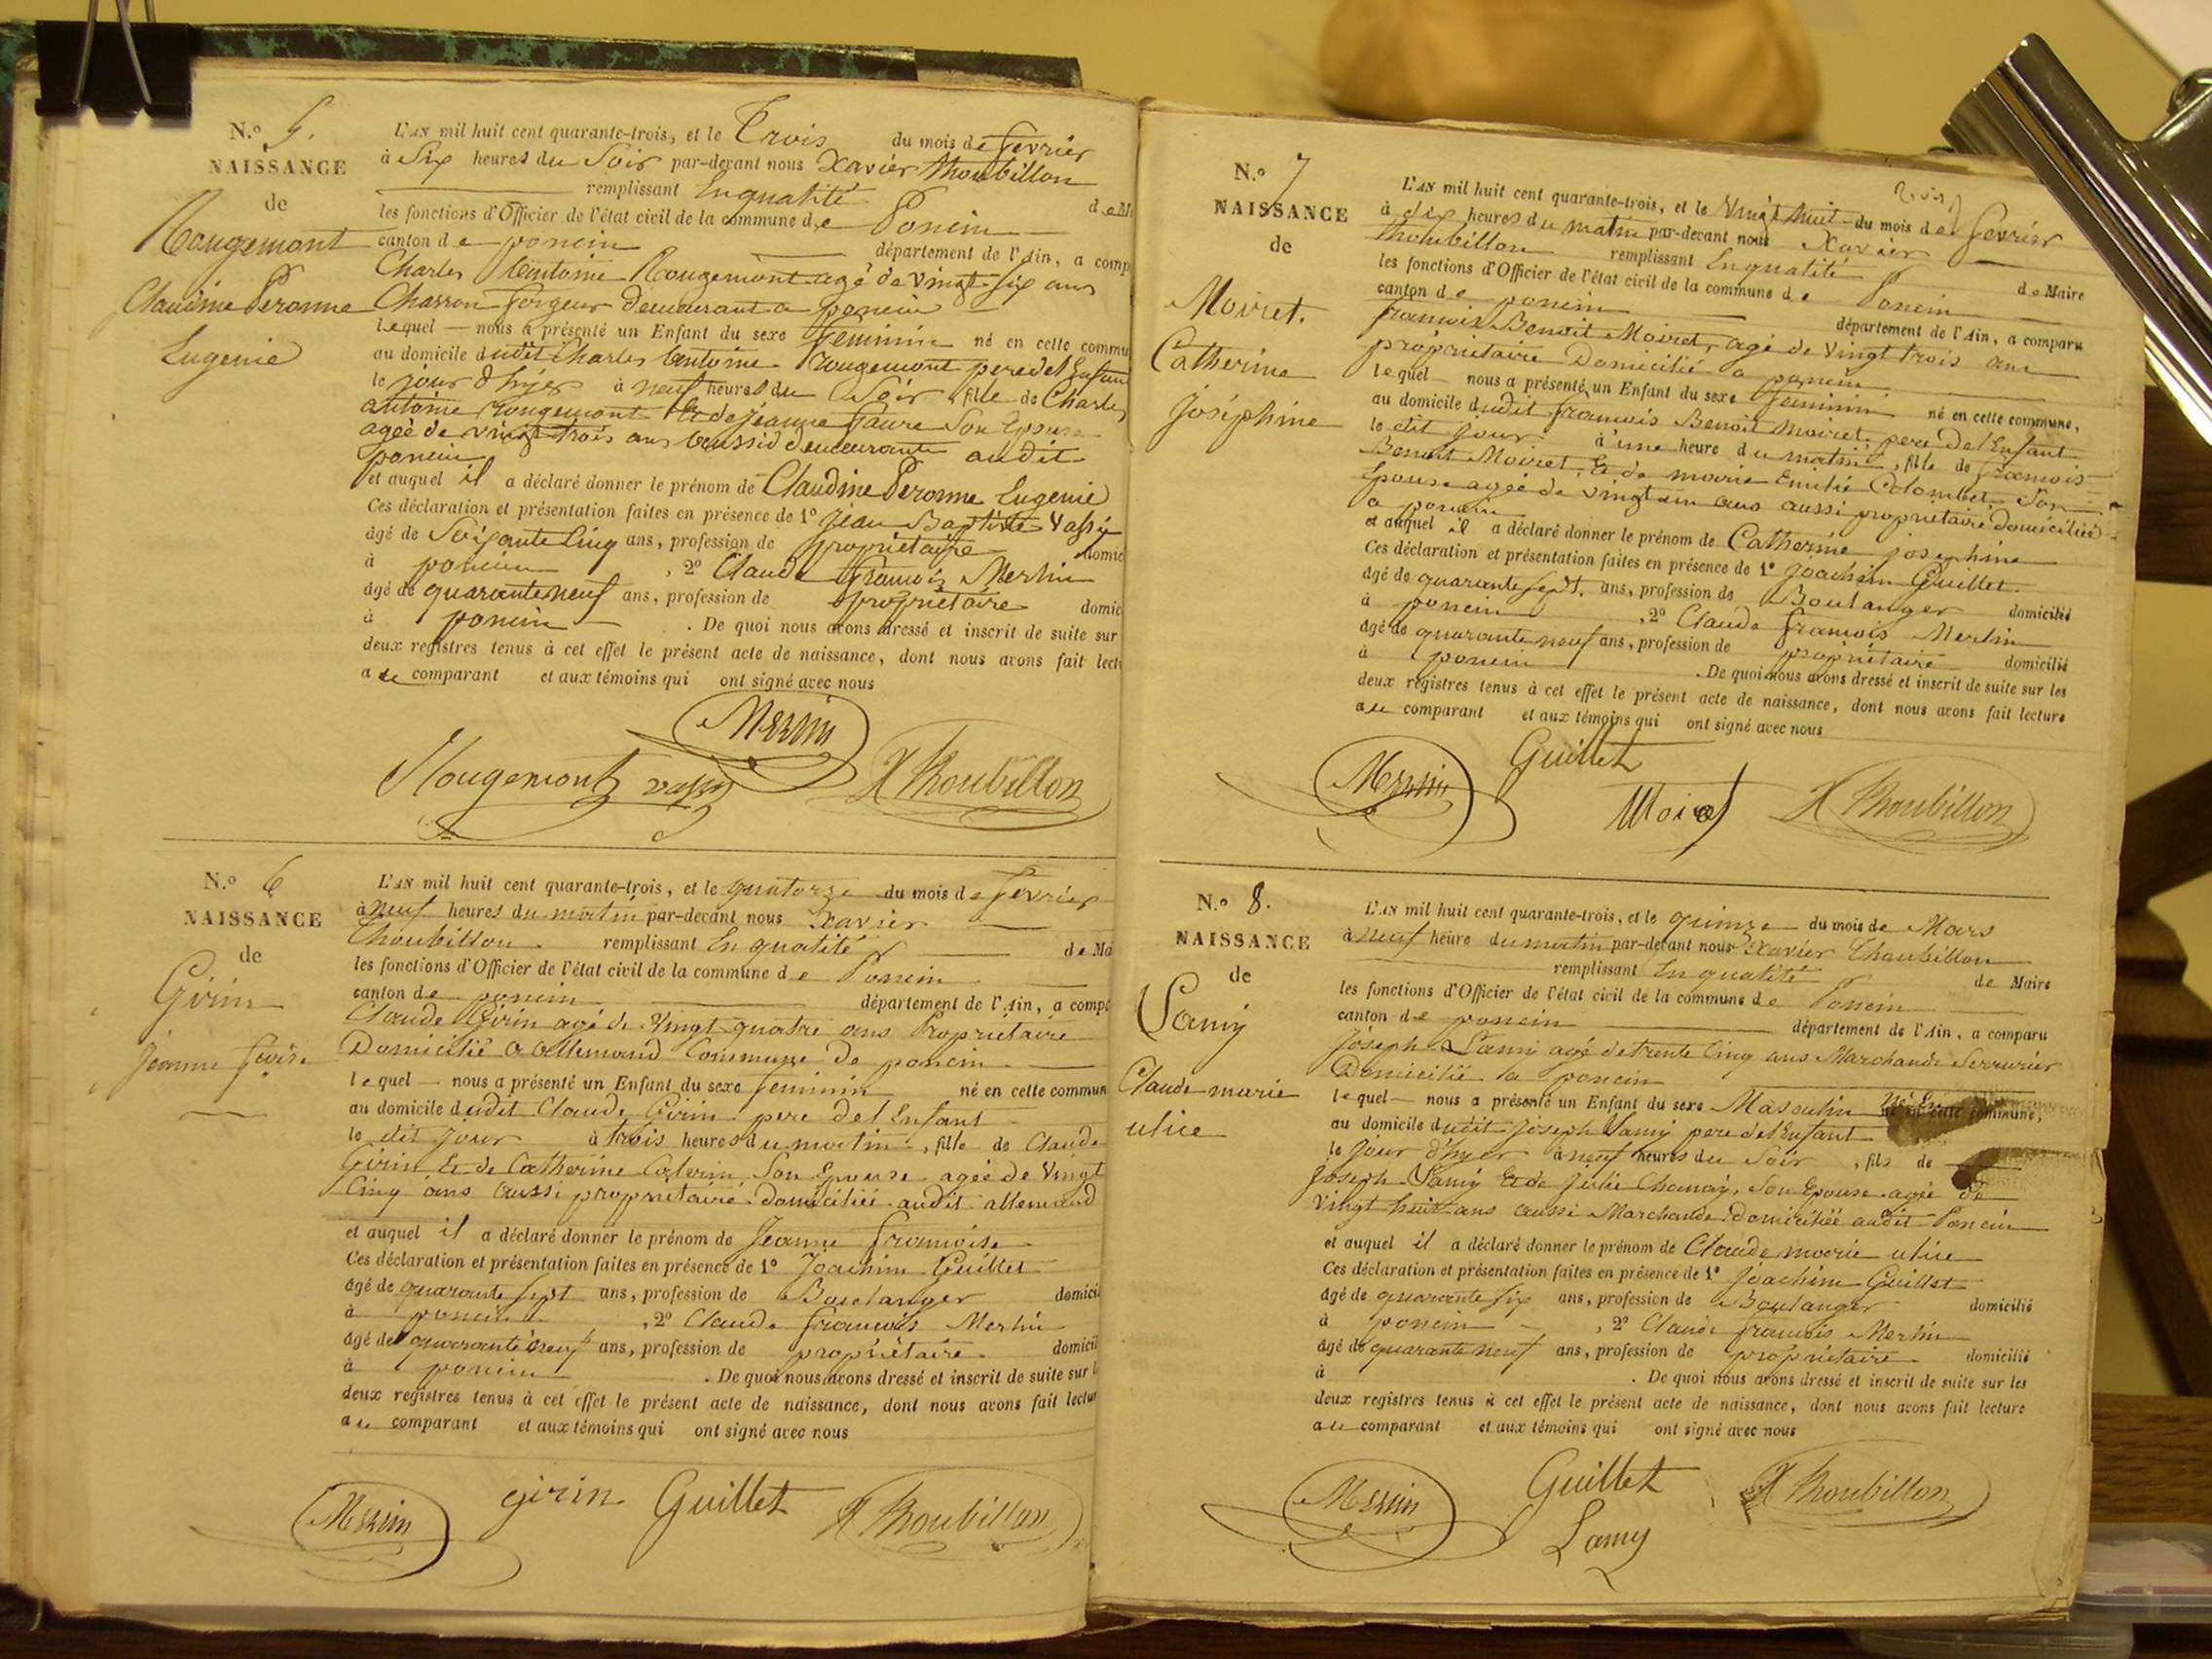 N.º 5.
NAISSANCE
de
Rougemont
Claudine Peronne
Eugenie
L'AN mil huit cent quarante-trois, et le Trois du mois de fevrier
à Six heures du Soir par-devant nous Xavier Thoubillon
remplissant En qualité de M
les fonctions d'Officier de l'état civil de la commune de Poncin
canton de poncin département de l'Ain, a comp
Charles Antoine Rougemont agé de vingt six ans
Charron forgeur demeurant a poncin
lequel nous a présenté un Enfant du sexe feminin né en cette commu
au domicile dudit Charles Antoine Rougemont pere del Enfant
le jour d'hyer à neuf heures du Soir fille de Charles
antoine Rougemont Et de Jeanne Faure Son Epouse
agée de vingt trois ans aussi demeurante audit
poncin
et auquel il a déclaré donner le prénom de Claudine Peronne Eugenie
Ces déclaration et présentation faites en présence de 1º Jean Baptiste Vassy
âgé de Soixante Cinq ans, profession de propriétaire domic
à poncin, 2º Claude françois Merlin
âgé de quarante neuf ans, profession de propriétaire domic
à poncin. De quoi nous avons dressé et inscrit de suite sur
deux registres tenus à cet effet le présent acte de naissance, dont nous avons fait lect
au comparant et aux témoins qui ont signé avec nous
Merlin
Rougemont vassy X Thoubillon
N.º 6
NAISSANCE
de
Girin
Jeanne
L'AN mil huit cent quarante-trois, et le quatorze du mois de fevrier
à neuf heures du matin par-devant nous Xavier
Thoubillon remplissant En qualité de Ma
les fonctions d'Officier de l'état civil de la commune de Poncin
canton de poncin département de l'Ain, a comp
Claude Girin agé de Vingt quatre ans Propriétaire
Domicilié a allemand Commune de poncin
lequel nous a présenté un Enfant du sexe feminin né en cette commun
au domicile dudit Claude Girin pere del Enfant
le dit jour à trois heures du matin, fille de Claude
Girin Et de Catherine Son Epouse agée de Vingt
Cinq ans aussi propriétaire domiciliée audit allemand
et auquel il a déclaré donner le prénom de Jeanne françoise
Ces déclaration et présentation faites en présence de 1º Joachim Guillet
âgé de quarante sept ans, profession de Boulanger domicil
à poncin, 2º Claude françois Merlin
âgé de quarante neuf ans, profession de propriétaire domicil
à poncin. De quoi nous avons dressé et inscrit de suite sur l
deux registres tenus à cet effet le présent acte de naissance, dont nous avons fait lectur
au comparant et aux témoins qui ont signé avec nous
Merlin girin Guillet X Thoubillon
N.º 7
NAISSANCE
de
Moiret.
Catherine
Joséphine
L'AN mil huit cent quarante-trois, et le Vingt huit du mois de fevrier
à dix heures du matin par-devant nous Xavier
Thoubillon remplissant En qualité de Maire
les fonctions d'Officier de l'état civil de la commune de Poncin
canton de poncin département de l'Ain, a comparu
françois Benoit Moiret, agé de vingt trois ans
propriétaire Domicilié a poncin
lequel nous a présenté un Enfant du sexe feminin né en cette commune,
au domicile dudit françois Benoit Moiret pere del Enfant
le dit jour à une heure du matin, fille de françois
Benoit Moiret, Et de marie Emilie Colombet, Son
Epouse agée de vingt un ans aussi propriétaire domiciliée
a poncin
et auquel il a déclaré donner le prénom de Catherine josephine
Ces déclaration et présentation faites en présence de 1º Joachim Guillet
âgé de quarante sept. ans, profession de Boulanger domicilié
à poncin, 2º Claude françois Merlin
âgé de quarante neuf ans, profession de propriétaire domicilié
à poncin. De quoi nous avons dressé et inscrit de suite sur les
deux registres tenus à cet effet le présent acte de naissance, dont nous avons fait lecture
au comparant et aux témoins qui ont signé avec nous
Merlin Guillet Moiret X Thoubillon
N.º 8.
NAISSANCE
de
Lamy
Claude marie
ulice
L'AN mil huit cent quarante-trois, et le quinze du mois de Mars
à neuf heure du matin par-devant nous Xavier Thoubillon
remplissant En qualité de Maire
les fonctions d'Officier de l'état civil de la commune de Poncin
canton de poncin département de l'Ain, a comparu
Joseph Lamy agé de trente Cinq ans Marchand Serrurier
Domicilié a poncin
lequel nous a présenté un Enfant du sexe Masculin né en cette commune,
au domicile dudit joseph Lamy pere del Enfant
le jour d'hyer à neuf heures du Soir, fils de
Joseph Lamy Et de Julie Son Epouse agée de
Vingt huit ans aussi Marchande domiciliée audit Poncin
et auquel il a déclaré donner le prénom de Claude marie ulice
Ces déclaration et présentation faites en présence de 1º Joachim Guillet
âgé de quarante six ans, profession de Boulanger domicilié
à poncin, 2º Claude françois Merlin
âgé de quarante neuf ans, profession de propriétaire domicilié
à . De quoi nous avons dressé et inscrit de suite sur les
deux registres tenus à cet effet le présent acte de naissance, dont nous avons fait lecture
au comparant et aux témoins qui ont signé avec nous
Merlin Guillet X Thoubillon
Lamy